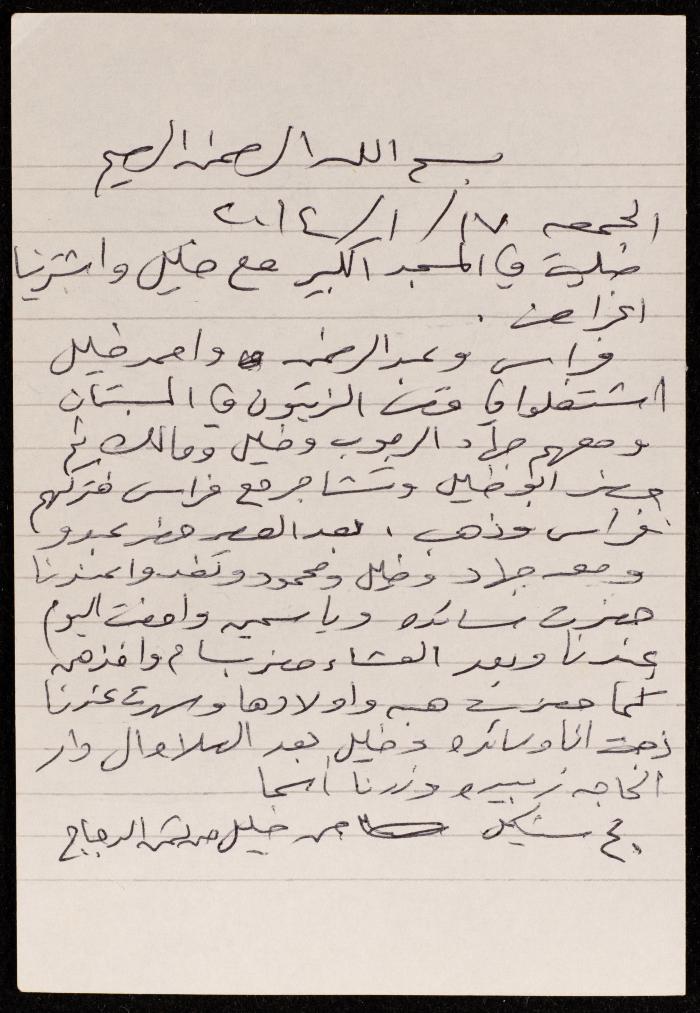 بسم الله الرحمن الرحيم
الجمعه ١٧/١/٢٠١٤
صليت في المسجد الكبير مع خليل واشترينا
اغراض .
فراس وعبد الرحمن واحمد خليل
اشتغلوا في الزيتون في البستان
ومعهم جهاد الرجوب وخليل ومالك ثم
حضر ابو خليل وتشاجر مع فراس فتركهم
فراس وذهب . بعد العصر حضر عبدو
ومعه جهاد وخليل ومحمود وتغدوا عندنا
حضرت سائده وياسمين وامضت اليوم
عندنا وبعد العشاء حضر بسام واخذهن
كما حضرت هبه واولادها وسهرت عندنا
ذهبت انا وسائده وخليل بعد الى دار
الحاجه وزرنا اسما
شيكل من خليل من ثمن الدجاج